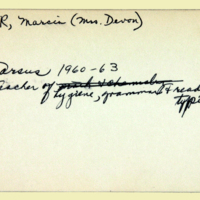 R, Marcia (Mrs. Devon)
Tarsus 1960-63
acher of
hygiene, grammar & read
typi